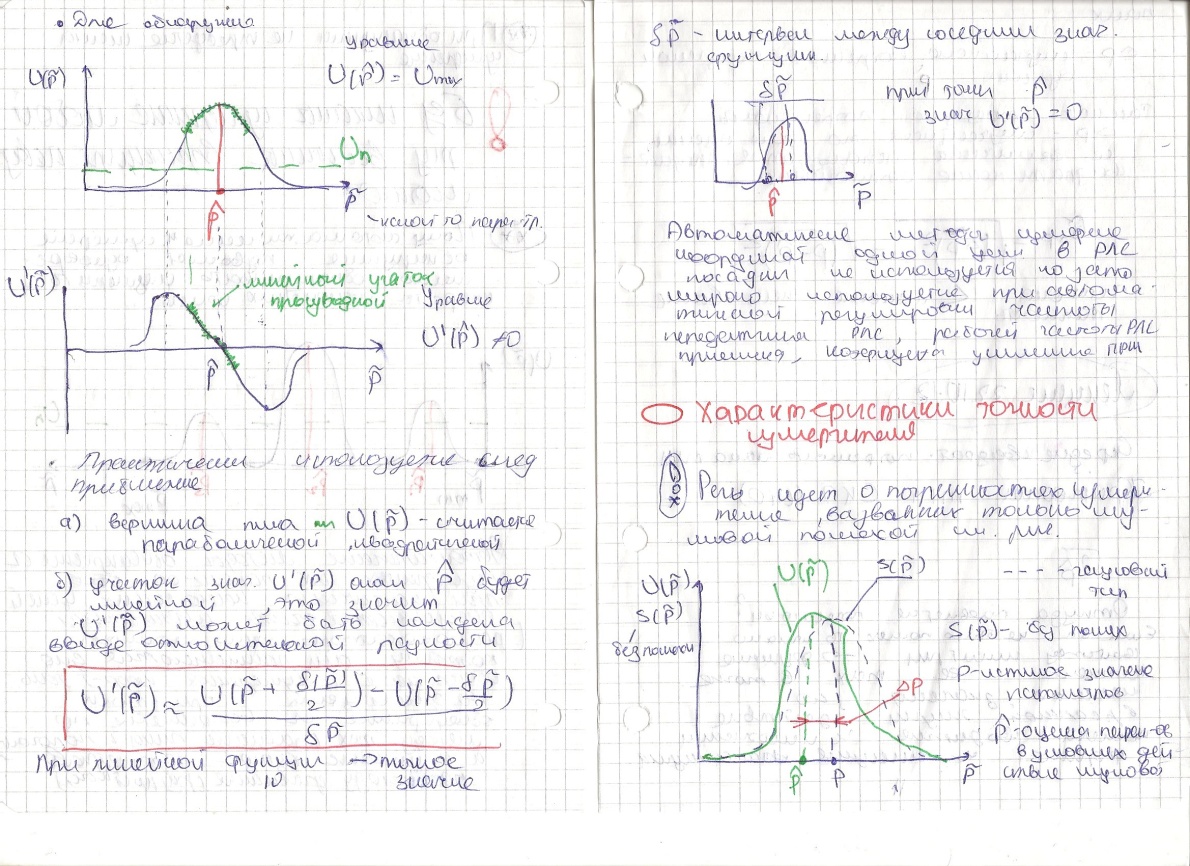 • Для обнаружения
уравние
U(p̃)
U(p̂) = Umax
Uп
p̂
p̃
U'(p̃)
линейный участок
производной
Уравние
U'(p̂) ≠0
p̂
p̃
Практически используется след
приближение
а) вершина пика U(p̃) - считается
параболической, квадратичной
б) участок знач. U'(p̃) около p̂ будет
линейной, это значит
U'(p̃) может быть найдена
ввиде относительной разности
U'(p̃) ≈ U(p̃ + δ(p̃)/2) - U(p̃ - δp̃/2)
δp̃
При линейной функции → точное
значение
10
δp̃ - интервал между соседними знач.
функции.
δp̃
при точн p̂
знач U'(p̃) = 0
p̂
p̃
Автоматические методы измерения
координат одной цели в РЛС
посадки не используется но зато
широко используется при автома-
тической регулировки частоты
передатчика РЛС, рабочей частоты РЛС
приемника, коэфициента усиления ПРМ
Характеристики точности
измерителя
Речь идет о погрешностях измере-
вызванных только шу-
мовой помехой
U(p̃)
S(p̃)
без помехи
U(p̃)
S(p̃)
- - - - гаусовый
тип
S(p̃) - без помех
P-истиное значение
параметров
ΔP
p̂ -оценка парам-ов
в условиях дей
ствие шумовой
p̂
P
p̃